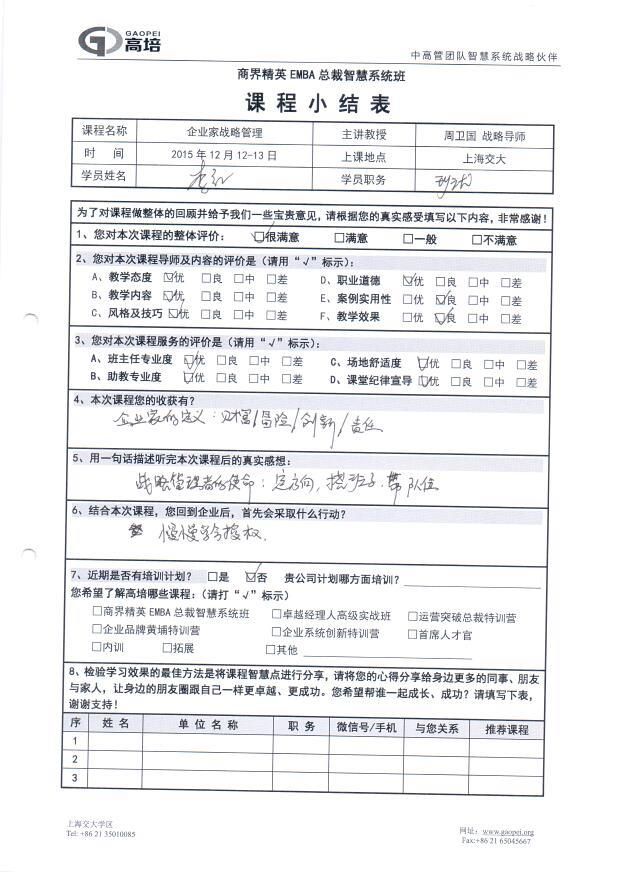 GAOPEI
高培
中高管团队智慧系统战略伙伴
商界精英 EMBA 总裁智慧系统班
课 程 小 结 表
课程名称 企业家战略管理 主讲教授 周卫国 战略导师
时 间 2015 年 12 月 12-13 日 上课地点 上海交大
学员姓名 学员职务
为了对课程做整体的回顾并给予我们一些宝贵意见，请根据您的真实感受填写以下内容，非常感谢！
1、您对本次课程的整体评价： ☑很满意 □满意 □一般 □不满意
2、您对本次课程导师及内容的评价是（请用“√”标示）：
A、教学态度 ☑优 □良 □中 □差 D、职业道德 ☑优 □良 □中 □差
B、教学内容 ☑优 □良 □中 □差 E、案例实用性 □优 ☑良 □中 □差
C、风格及技巧 ☑优 □良 □中 □差 F、教学效果 □优 ☑良 □中 □差
3、您对本次课程服务的评价是（请用“√”标示）：
A、班主任专业度 ☑优 □良 □中 □差 C、场地舒适度 ☑优 □良 □中 □差
B、助教专业度 ☑优 □良 □中 □差 D、课堂纪律宣导 ☑优 □良 □中 □差
4、本次课程您的收获有？
企业家的定义：财富/冒险/创新/责任
5、用一句话描述听完本次课程后的真实感想：
战略管理者的使命：定方向，搭班子，带队伍
6、结合本次课程，您回到企业后，首先会采取什么行动？
慢慢学会授权．
7、近期是否有培训计划？ □是 ☑否 贵公司计划哪方面培训？
您希望了解高培哪些课程：（请打“√”标示）
□商界精英 EMBA 总裁智慧系统班 □卓越经理人高级实战班 □运营突破总裁特训营
□企业品牌黄埔特训营 □企业系统创新特训营 □首席人才官
□内训 □拓展 □其他
8、检验学习效果的最佳方法是将课程智慧点进行分享，请将您的心得分享给身边更多的同事、朋友
与家人，让身边的朋友圈跟自己一样更卓越、更成功。您希望帮谁一起成长、成功？请填写下表，
谢谢支持！
序 姓 名 单 位 名 称 职 务 微信号/手机 与您关系 推荐课程
1
2
3
上海交大学区
Tel: +86 21 35010085
网址：www.gaopei.org
Fax:+86 21 65045667